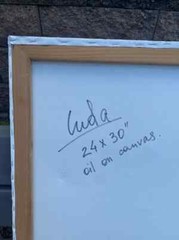 Luda
24 x 30"
oil on canvas.